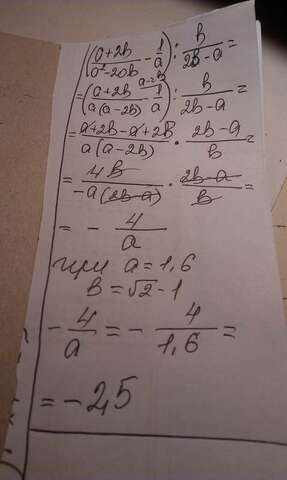 (a+2b/a²-2ab - 1/a) : b/2b-a =
= (a+2b/a(a-2b) - 1/a a-2b) : b/2b-a =
= a+2b-a+2b/a(a-2b) · 2b-a/b =
= 4b/-a(2b-a) · 2b-a/b =
= - 4/a
при a = 1,6
b = √2 - 1
- 4/a = - 4/1,6 =
= - 2,5